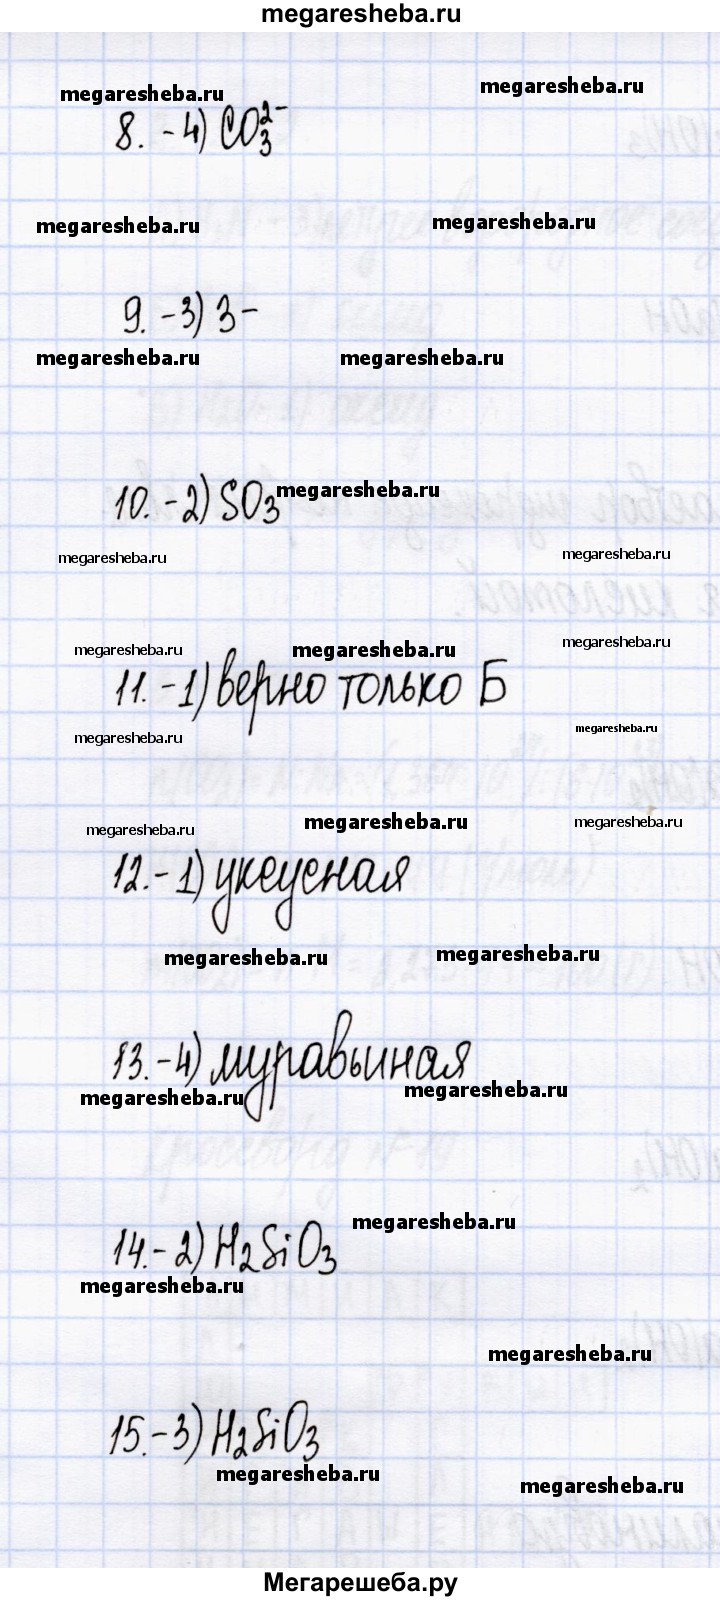 megaresheba.ru
megaresheba.ru megaresheba.ru
8. -4) CO₃²⁻
megaresheba.ru megaresheba.ru
9. -3) 3-
megaresheba.ru megaresheba.ru
10. -2) SO₃ megaresheba.ru
megaresheba.ru megaresheba.ru
megaresheba.ru megaresheba.ru megaresheba.ru
11. -1) верно только Б
megaresheba.ru megaresheba.ru
megaresheba.ru megaresheba.ru megaresheba.ru
12. -1) уксусная
megaresheba.ru megaresheba.ru
13. -4) муравьиная
megaresheba.ru megaresheba.ru
megaresheba.ru
14. -2) H₂SiO₃
megaresheba.ru
megaresheba.ru
15. -3) H₂SiO₃
megaresheba.ru megaresheba.ru
Мегарешеба.ру